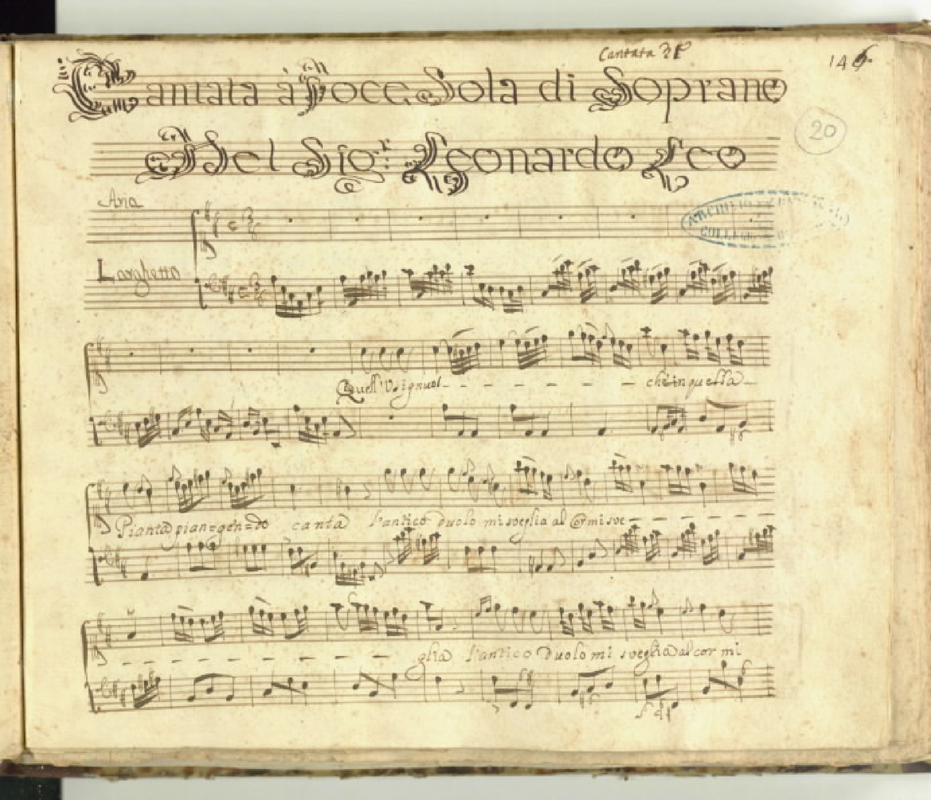 Cantata
Cantata à Voce Sola di Soprano
20
Del Sig.r Leonardo Leo
Aria
Larghetto
Quell' Usignuol - - - - - - ch'in quella -
Pianta pian=gen=do canta l'antico duolo mi sveglia al cor mi sve - - - - -
- - - - - - - - - glia l'antico duolo mi sveglia al cor mi